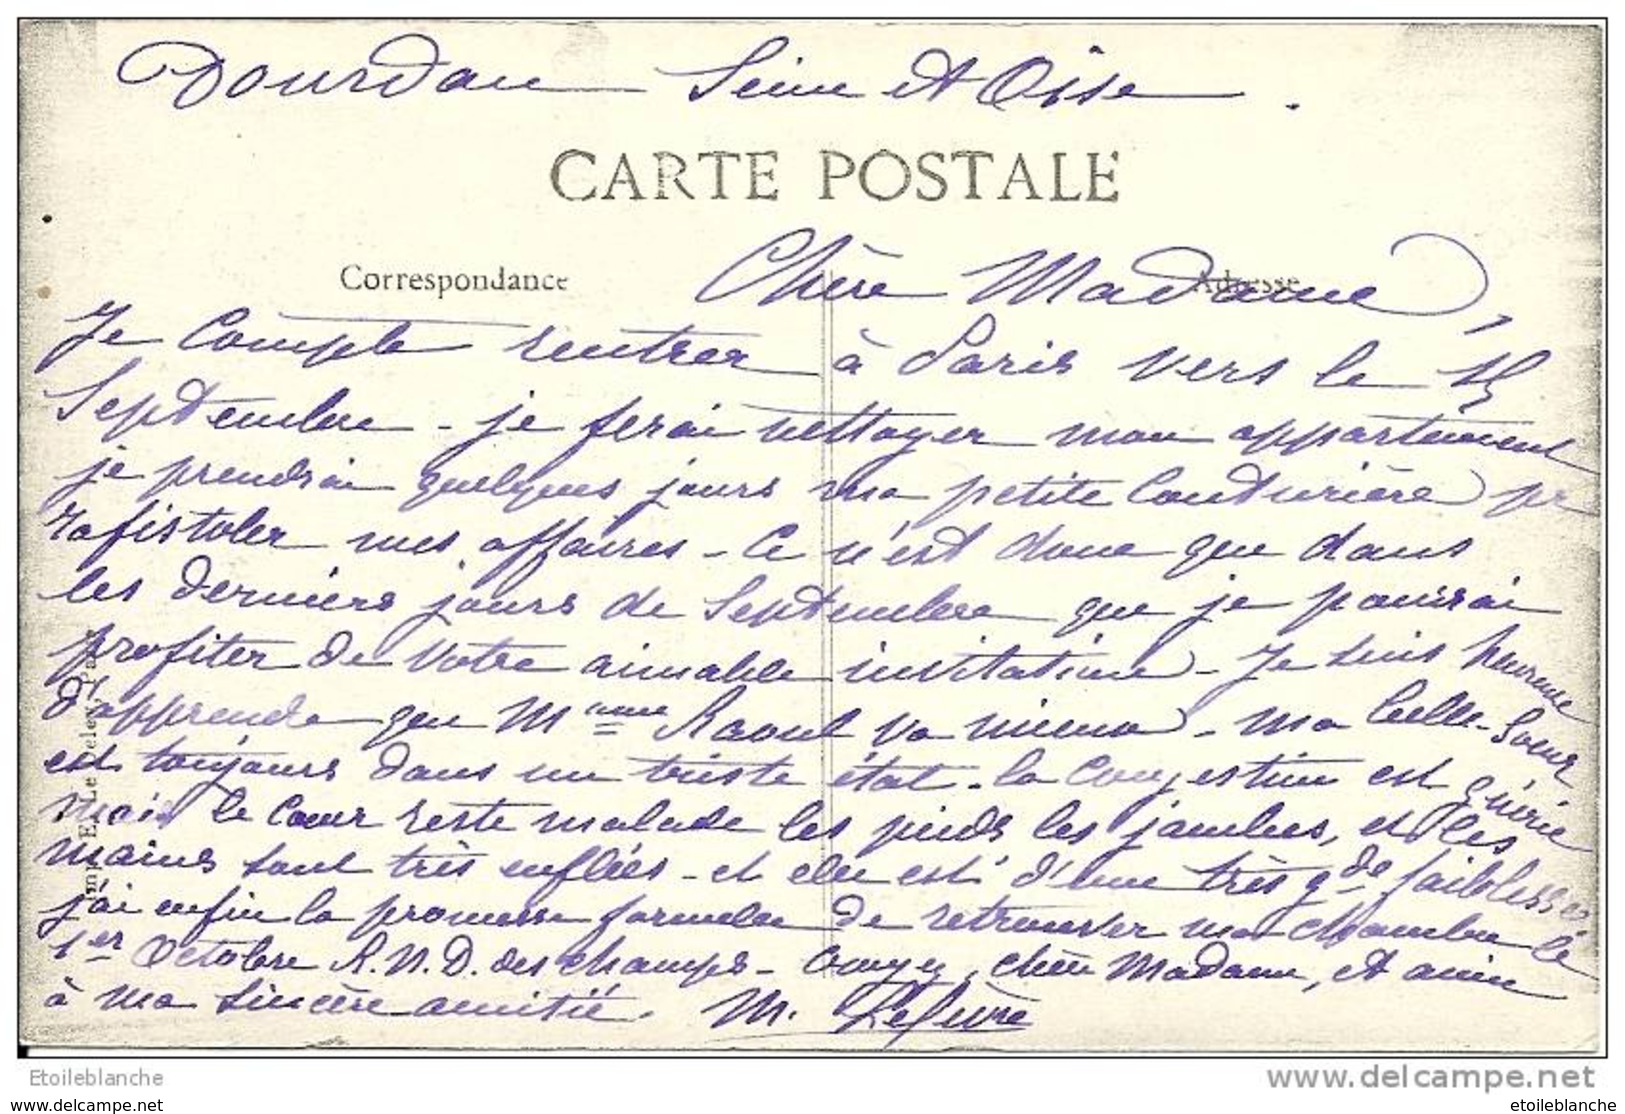 Dourdan Seine et Oise.
CARTE POSTALE
Correspondance
Adresse
Chère Madame,
Je compte rentrer à Paris vers le 15
Septembre - je ferai nettoyer mon appartement
je prendrai quelques jours ma petite couturière pr
rafistoler mes affaires - Ce n'est donc que dans
les derniers jours de Septembre que je pourrai
profiter de votre aimable invitation - Je suis heureuse
d'apprendre que Mme Raoul va mieux - ma belle-soeur
est toujours dans un triste état - la congestion est guérie
mais le coeur reste malade les pieds les jambes, et les
mains sont très enflées - et elle est d'une très gde faiblesse
j'ai enfin la promesse formelle de retrouver ma chambre le
1er Octobre R.N.D. des champs - Croyez, chère Madame, et amie
à ma sincère amitié. M. Lefèvre
Imp. E. Le Deley, Paris
Etoileblanche
www.delcampe.net
www.delcampe.net
etoileblanche